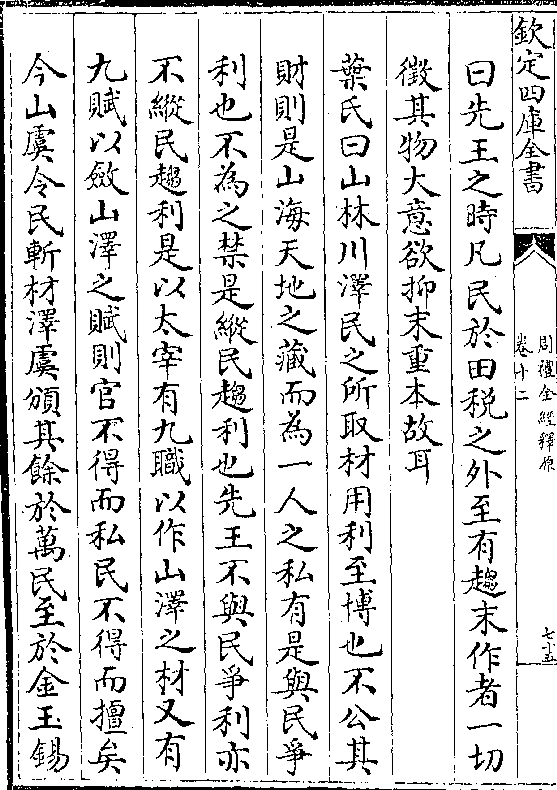 欽定四庫全書
周禮全經釋原
卷十二
七十五
曰先王之時凡民於田税之外至有趨末作者一切
徵其物大意欲抑末重本故耳
葉氏曰山林川澤民之所取材用利至博也不公其
財則是山海天地之藏而為一人之私有是與民爭
利也不為之禁是縱民趨利也先王不與民爭利亦
不縱民趨利是以太宰有九職以作山澤之材又有
九賦以斂山澤之賦則官不得而私民不得而擅矣
今山虞令民斬材澤虞頒其餘於萬民至於金玉錫